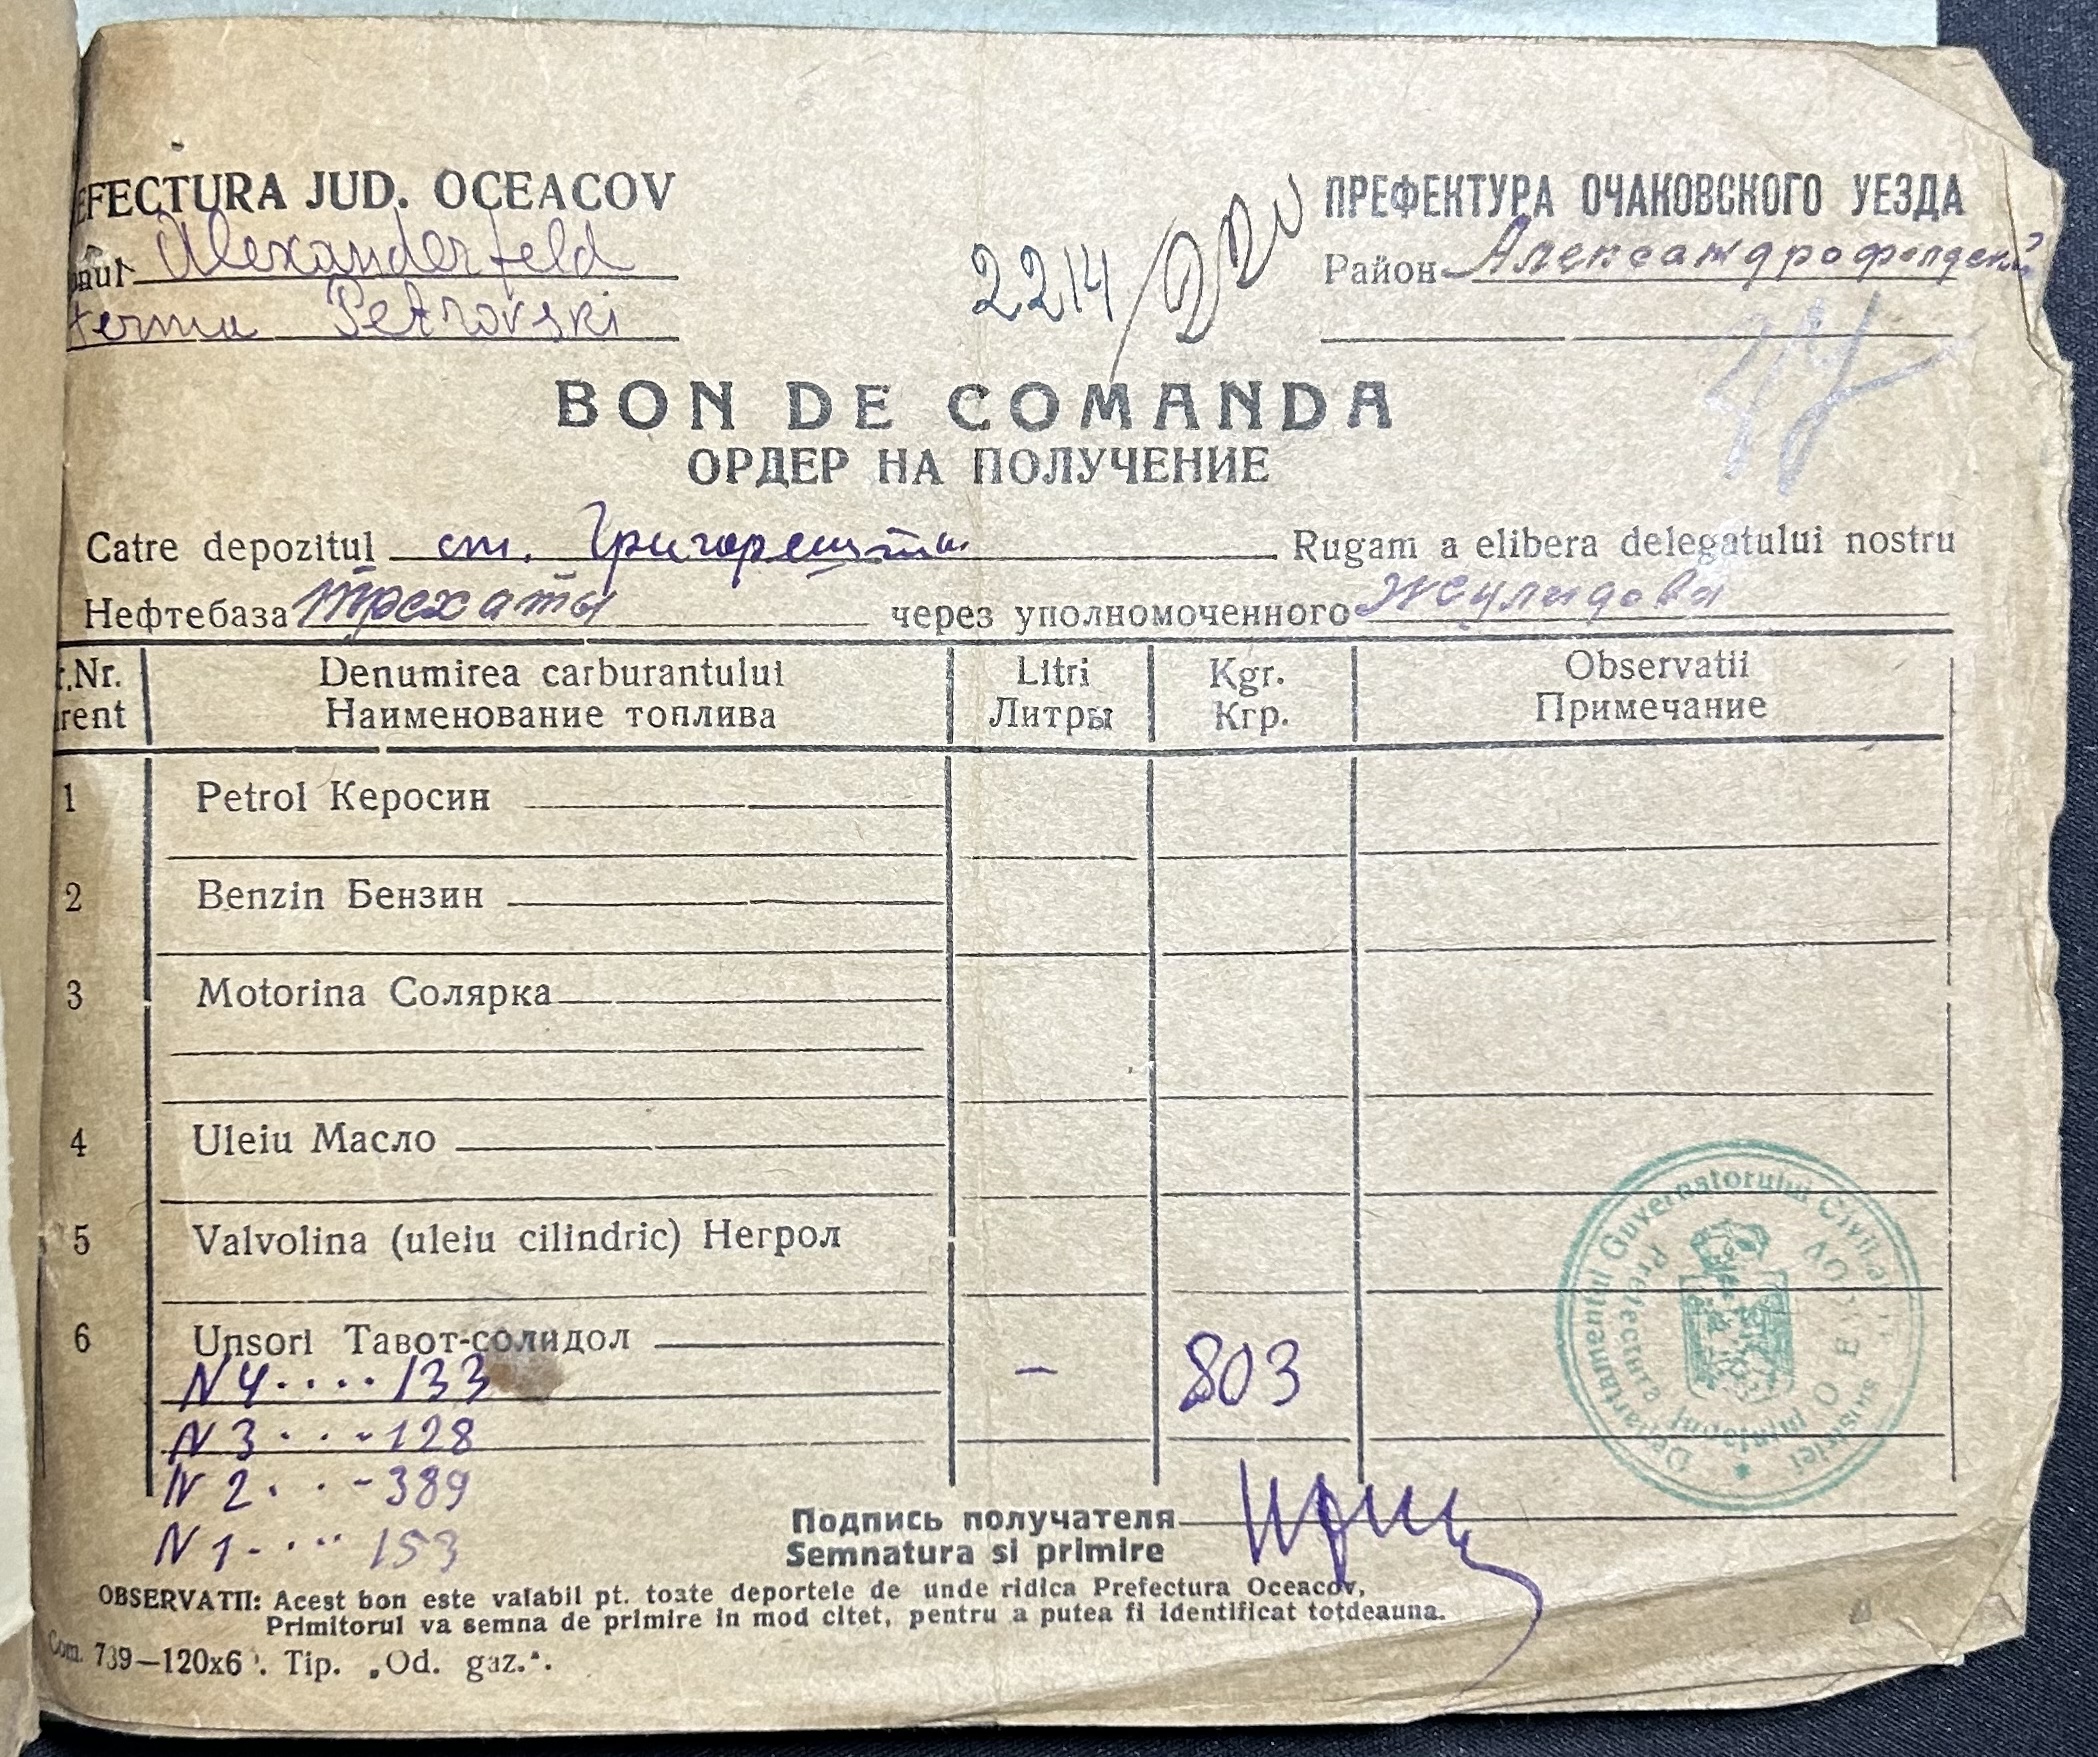 EFECTURA JUD. OCEACOV
onul Alexanderfeld
ferma Petrovski
2214/
ПРЕФЕКТУРА ОЧАКОВСКОГО УЕЗДА
Район Александрофелдский
BON DE COMANDA
ОРДЕР НА ПОЛУЧЕНИЕ
Catre depozitul ст. Григорешти Rugam a elibera delegatului nostru
Нефтебаза Трехаты через уполномоченного Жулидова
r.Nr. Denumirea carburantului Litri Kgr. Observatii
rent Наименование топлива Литры Кгр. Примечание
1 Petrol Керосин
2 Benzin Бензин
3 Motorina Солярка
4 Uleiu Масло
5 Valvolina (uleiu cilindric) Негрол
6 Unsori Тавот-солидол
N 4 .... 133 - 803
N 3 . . . - 128
N 2 . . . - 389
N 1 - . . . . 153
Departamentul Guvernatorului Civil
Prefectura Judetului
OCEACOV
Подпись получателя
Semnatura si primire
OBSERVATII: Acest bon este valabil pt. toate deportele de unde ridica Prefectura Oceacov,
Primitorul va semna de primire in mod citet, pentru a putea fi identificat totdeauna.
Com. 739—120x6 . Tip. „Od. gaz.“.